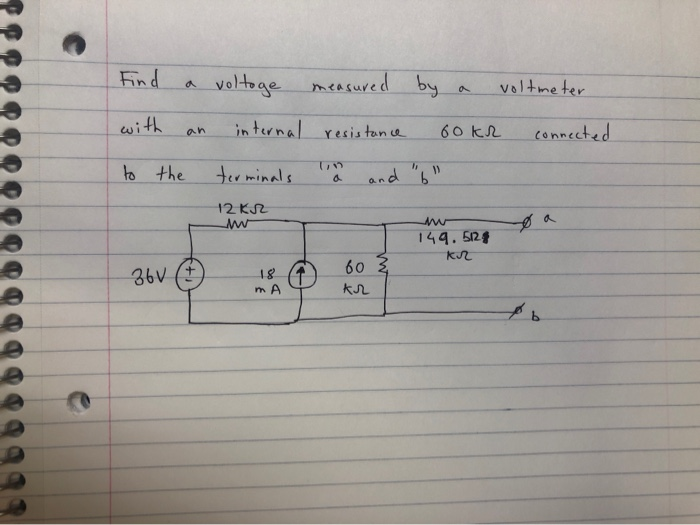 Find a voltage measured by a voltmeter
with an internal resistance 60 KΩ connected
to the terminals "a" and "b"
12 KΩ
a
149.5
KΩ
36V
+
-
18
mA
60
KΩ
b